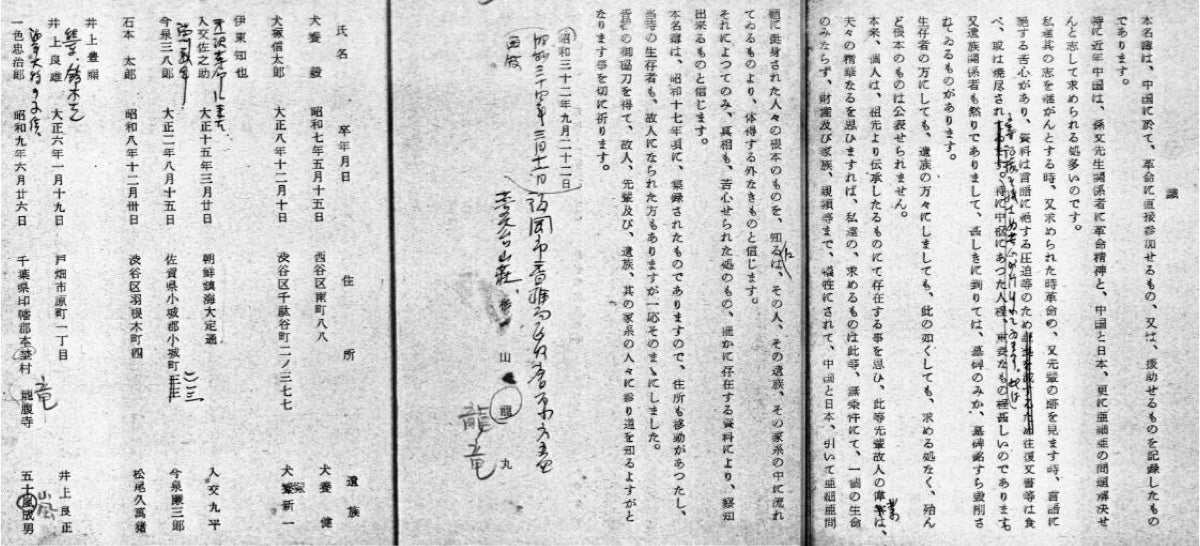 識
本名簿は、中国に於て、革命に直接参加せるもの、又は、援助せるものを記録したもの
であります。
特に近年中国は、孫文先生関係者に革命精神と、中国と日本、更に亜細亜の問題解決せ
んと志して求められる処多いのです。
私達其の志を継がんとする時、又求められた時革命の、又先輩の跡を見ます時、言語に
絶する苦心があり、資料は言語に絶する圧迫等のため 往復文書等は食
べ、或は焼尽され 特に中枢にあつた人程、重要なもの程甚しいのであります
又遺族関係者も然りでありまして、甚しきに到りては、墓碑のみか、墓碑銘すら毀削さ
れてゐるものがあります。
生存者の方にしても、遺族の方々にしましても、此の如くしても、求める処なく、殆ん
ど根本のものは公表せられません。
本来、個人は、祖先より伝承したるものにて存在する事を思ひ、此等先輩故人の偉業は、
夫々の精華なるを思ひますれば、私達の、求めるものは此等、無条件にて、一個の生命
のみならず、財産及び家族、親類等まで、犠牲にされて、中国と日本、引いて亜細亜問
題に挺身された人々の根本のものを、知るには、その人、その遺族、その家系の中に流れ
てゐるものより、体得する外なきものと信じます。
それによつてのみ、真相も、苦心せられた処のもの、確かに存在する資料により、察知
出来るものと信じます。
本名簿は、昭和十七年頃に、集録されたものでありますので、住所も移動があつたし、
当時の生存者も、故人になられた方もありますが一応そのまゝにしました。
皆様の御協力を得て、故人、先輩及び、遺族、其の家系の人々に参り道を知るよすがと
なります事を切に祈ります。
(昭和三十二年九月二十二日)
昭和三十四年三月十一日
福岡市
山荘 杉山龍丸
龍
竜
氏名 卒年月日 住所 遺族
犬養毅 昭和七年五月十五日 四谷区南町八八 犬養健
犬塚信太郎 大正八年十二月十日 渋谷区千駄谷町二ノ三七七 犬塚新一
伊東知也
入交佐之助 大正十五年三月廿日 朝鮮鎮海大定通 入交九平
今泉三八郎 大正二年八月十五日 佐賀県小城郡小城町 二三 今泉廉三郎
石本 太郎 昭和八年十二月卅日 渋谷区羽根木町四 松尾久萬猪
井上豊煕
井上良雄 大正六年一月十九日 戸畑市原町一丁目 井上良正
一色忠治郎 昭和九年六月廿六日 千葉県印幡郡本埜村 龍腹寺 五十嵐成男
竜
嵐